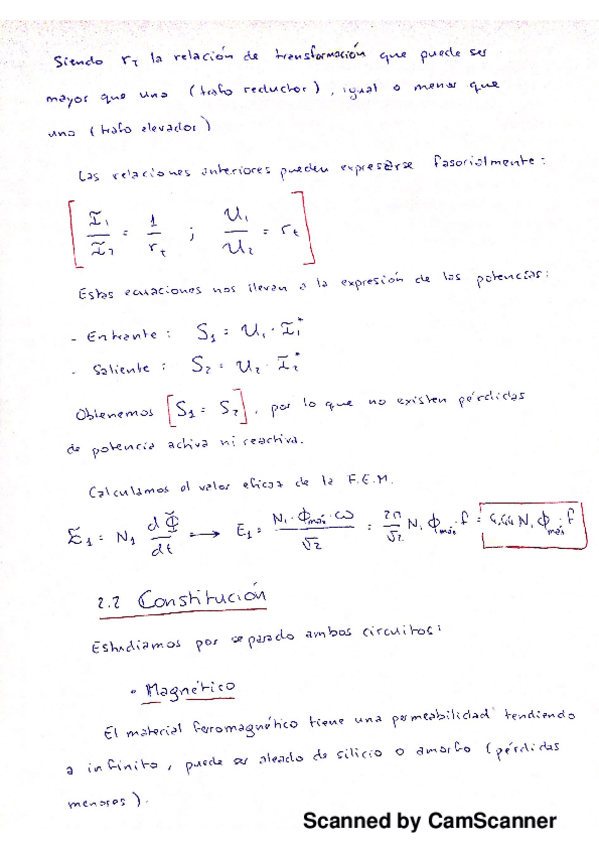 Siendo rt la relación de transformación que puede ser
mayor que uno (trafo reductor), igual o menor que
uno (trafo elevador)
Las relaciones anteriores pueden expresarse fasorialmente:
[ I₁/I₂ = 1/rt ; U₁/U₂ = rt ]
Estas ecuaciones nos llevan a la expresión de las potencias:
- Entrante : S₁ = U₁ · I₁*
- Saliente : S₂ = U₂ · I₂*
Obtenemos [S₁ = S₂], por lo que no existen pérdidas
de potencia activa ni reactiva.
Calculamos el valor eficaz de la F.E.M.
E₁ = N₁ dΦ/dt → E₁ = N₁·Φmáx·ω/√2 = 2π/√2 N₁ Φmáx·f = 4,44 N₁ Φmáx·f
2.2 Constitución
Estudiamos por separado ambos circuitos:
• Magnético
El material ferromagnético tiene una permeabilidad tendiendo
a infinito, puede ser aleado de silicio o amorfo (pérdidas
menores).
Scanned by CamScanner